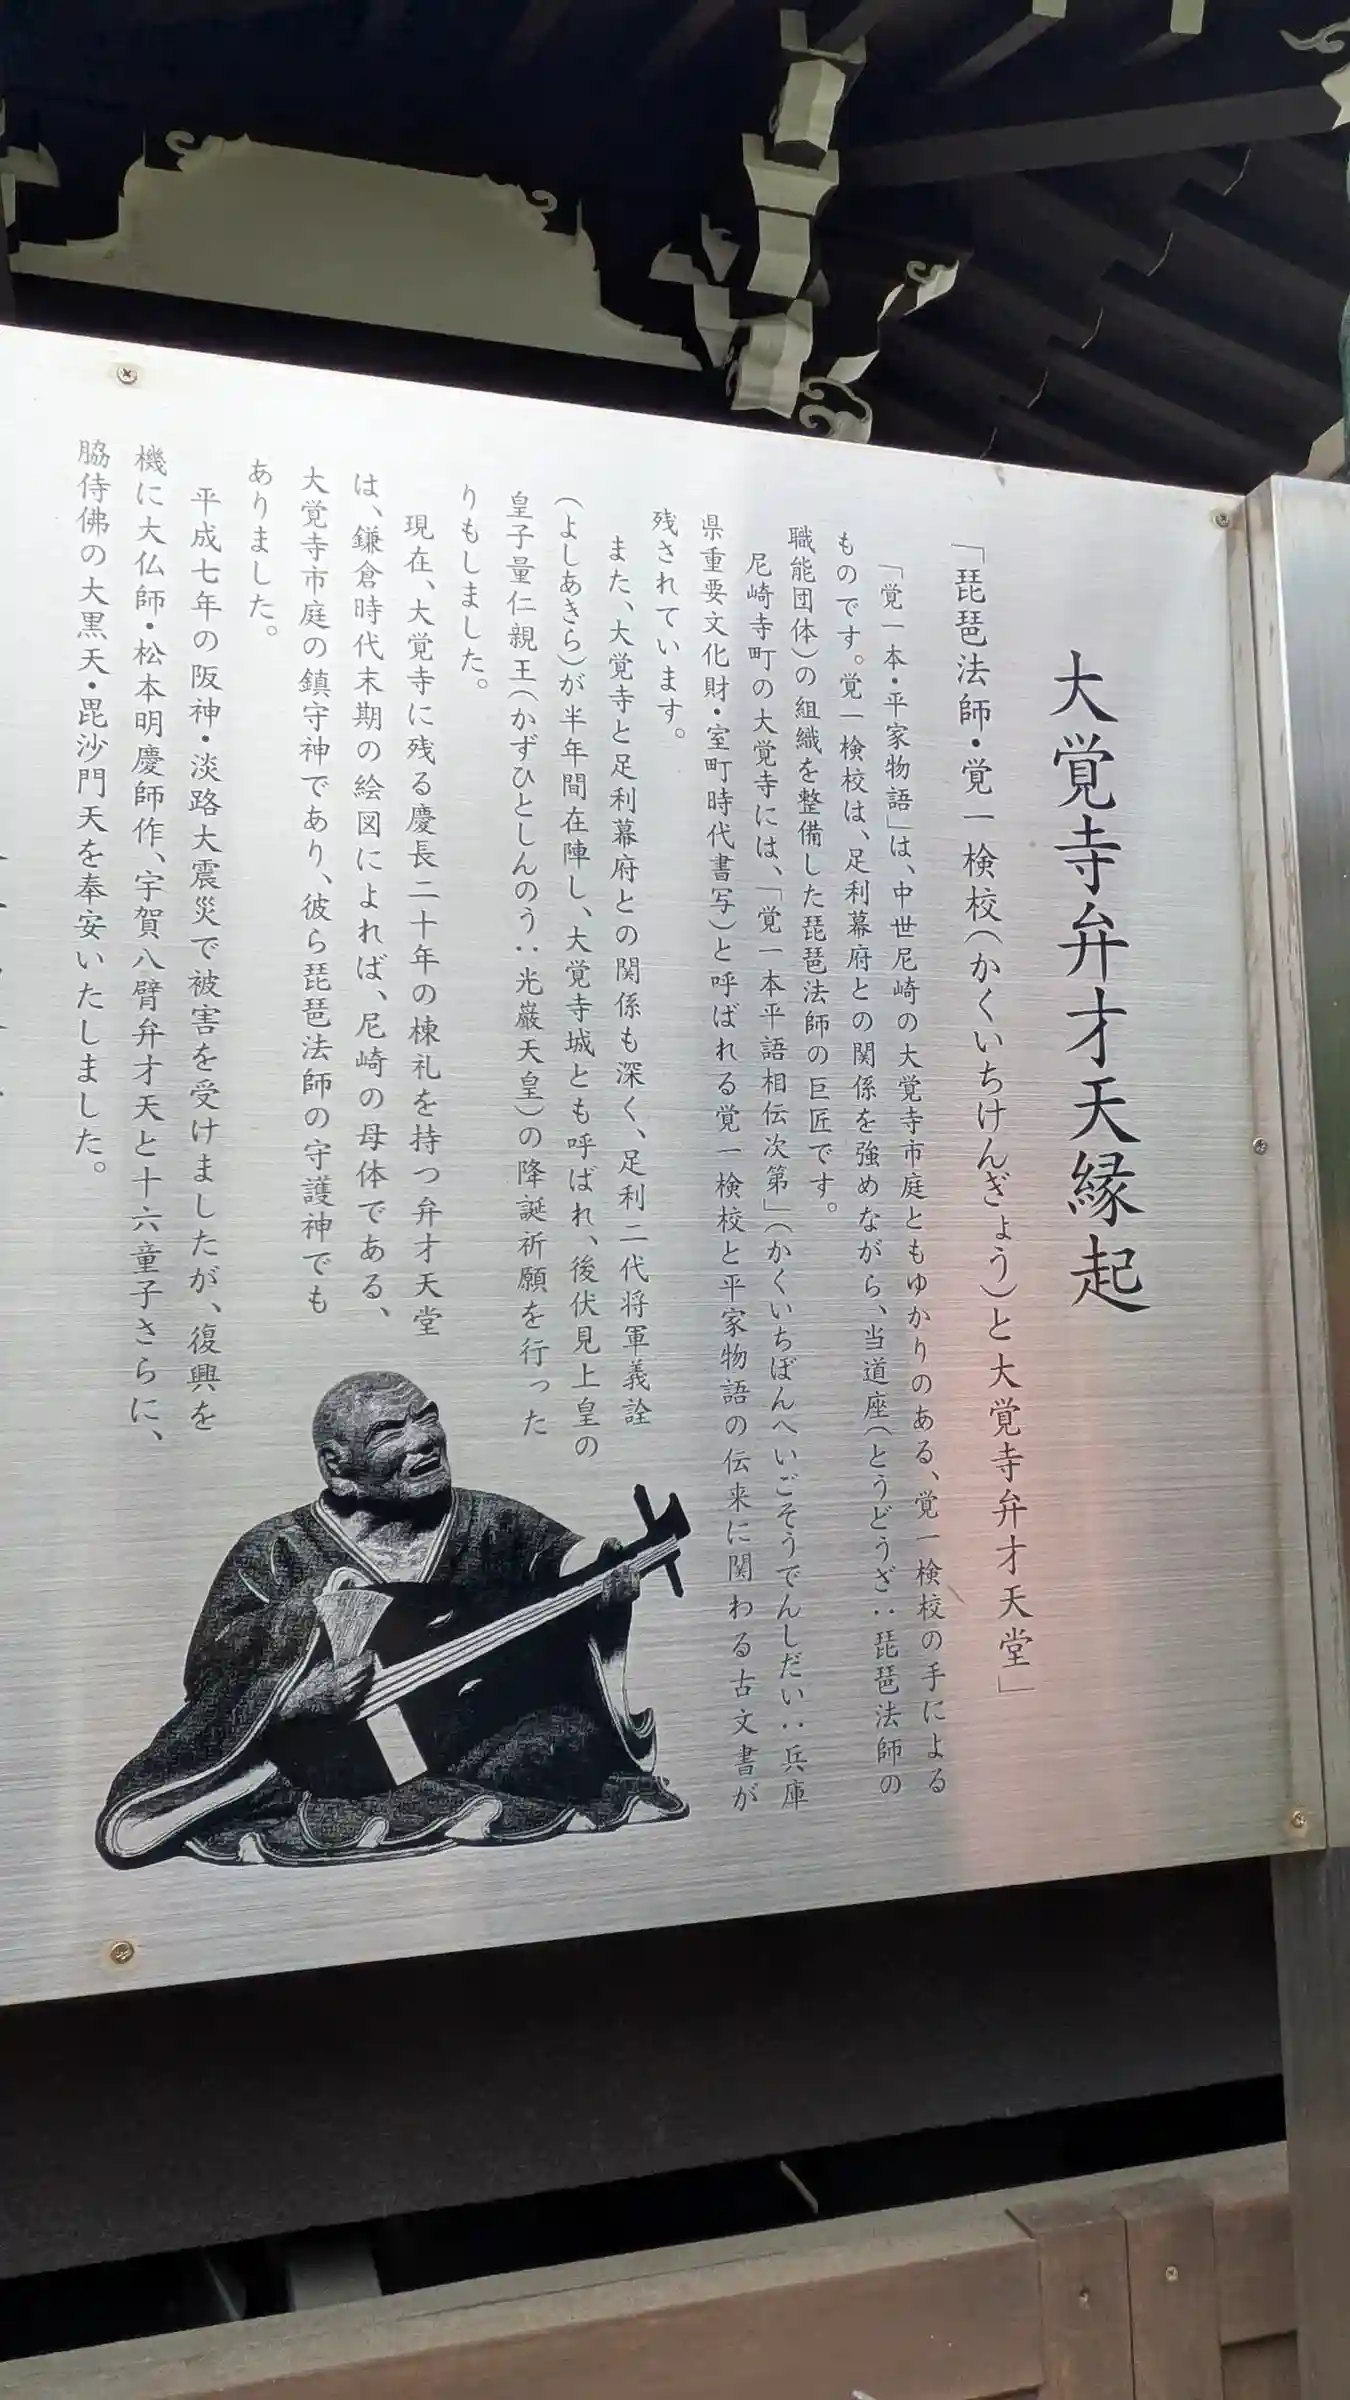 大覚寺弁才天縁起
「琵琶法師・覚一検校（かくいちけんぎょう）と大覚寺弁才天堂」
「覚一本・平家物語」は、中世尼崎の大覚寺市庭ともゆかりのある、覚一検校の手による
ものです。覚一検校は、足利幕府との関係を強めながら、当道座（とうどうざ：琵琶法師の
職能団体）の組織を整備した琵琶法師の巨匠です。
尼崎寺町の大覚寺には、「覚一本平語相伝次第」（かくいちぼんへいごそうでんしだい：兵庫
県重要文化財・室町時代書写）と呼ばれる覚一検校と平家物語の伝来に関わる古文書が
残されています。
また、大覚寺と足利幕府との関係も深く、足利二代将軍義詮
（よしあきら）が半年間在陣し、大覚寺城とも呼ばれ、後伏見上皇の
皇子量仁親王（かずひとしんのう：光厳天皇）の降誕祈願を行った
りもしました。
現在、大覚寺に残る慶長二十年の棟札を持つ弁才天堂
は、鎌倉時代末期の絵図によれば、尼崎の母体である、
大覚寺市庭の鎮守神であり、彼ら琵琶法師の守護神でも
ありました。
平成七年の阪神・淡路大震災で被害を受けましたが、復興を
機に大仏師・松本明慶師作、宇賀八臂弁才天と十六童子さらに、
脇侍佛の大黒天・毘沙門天を奉安いたしました。